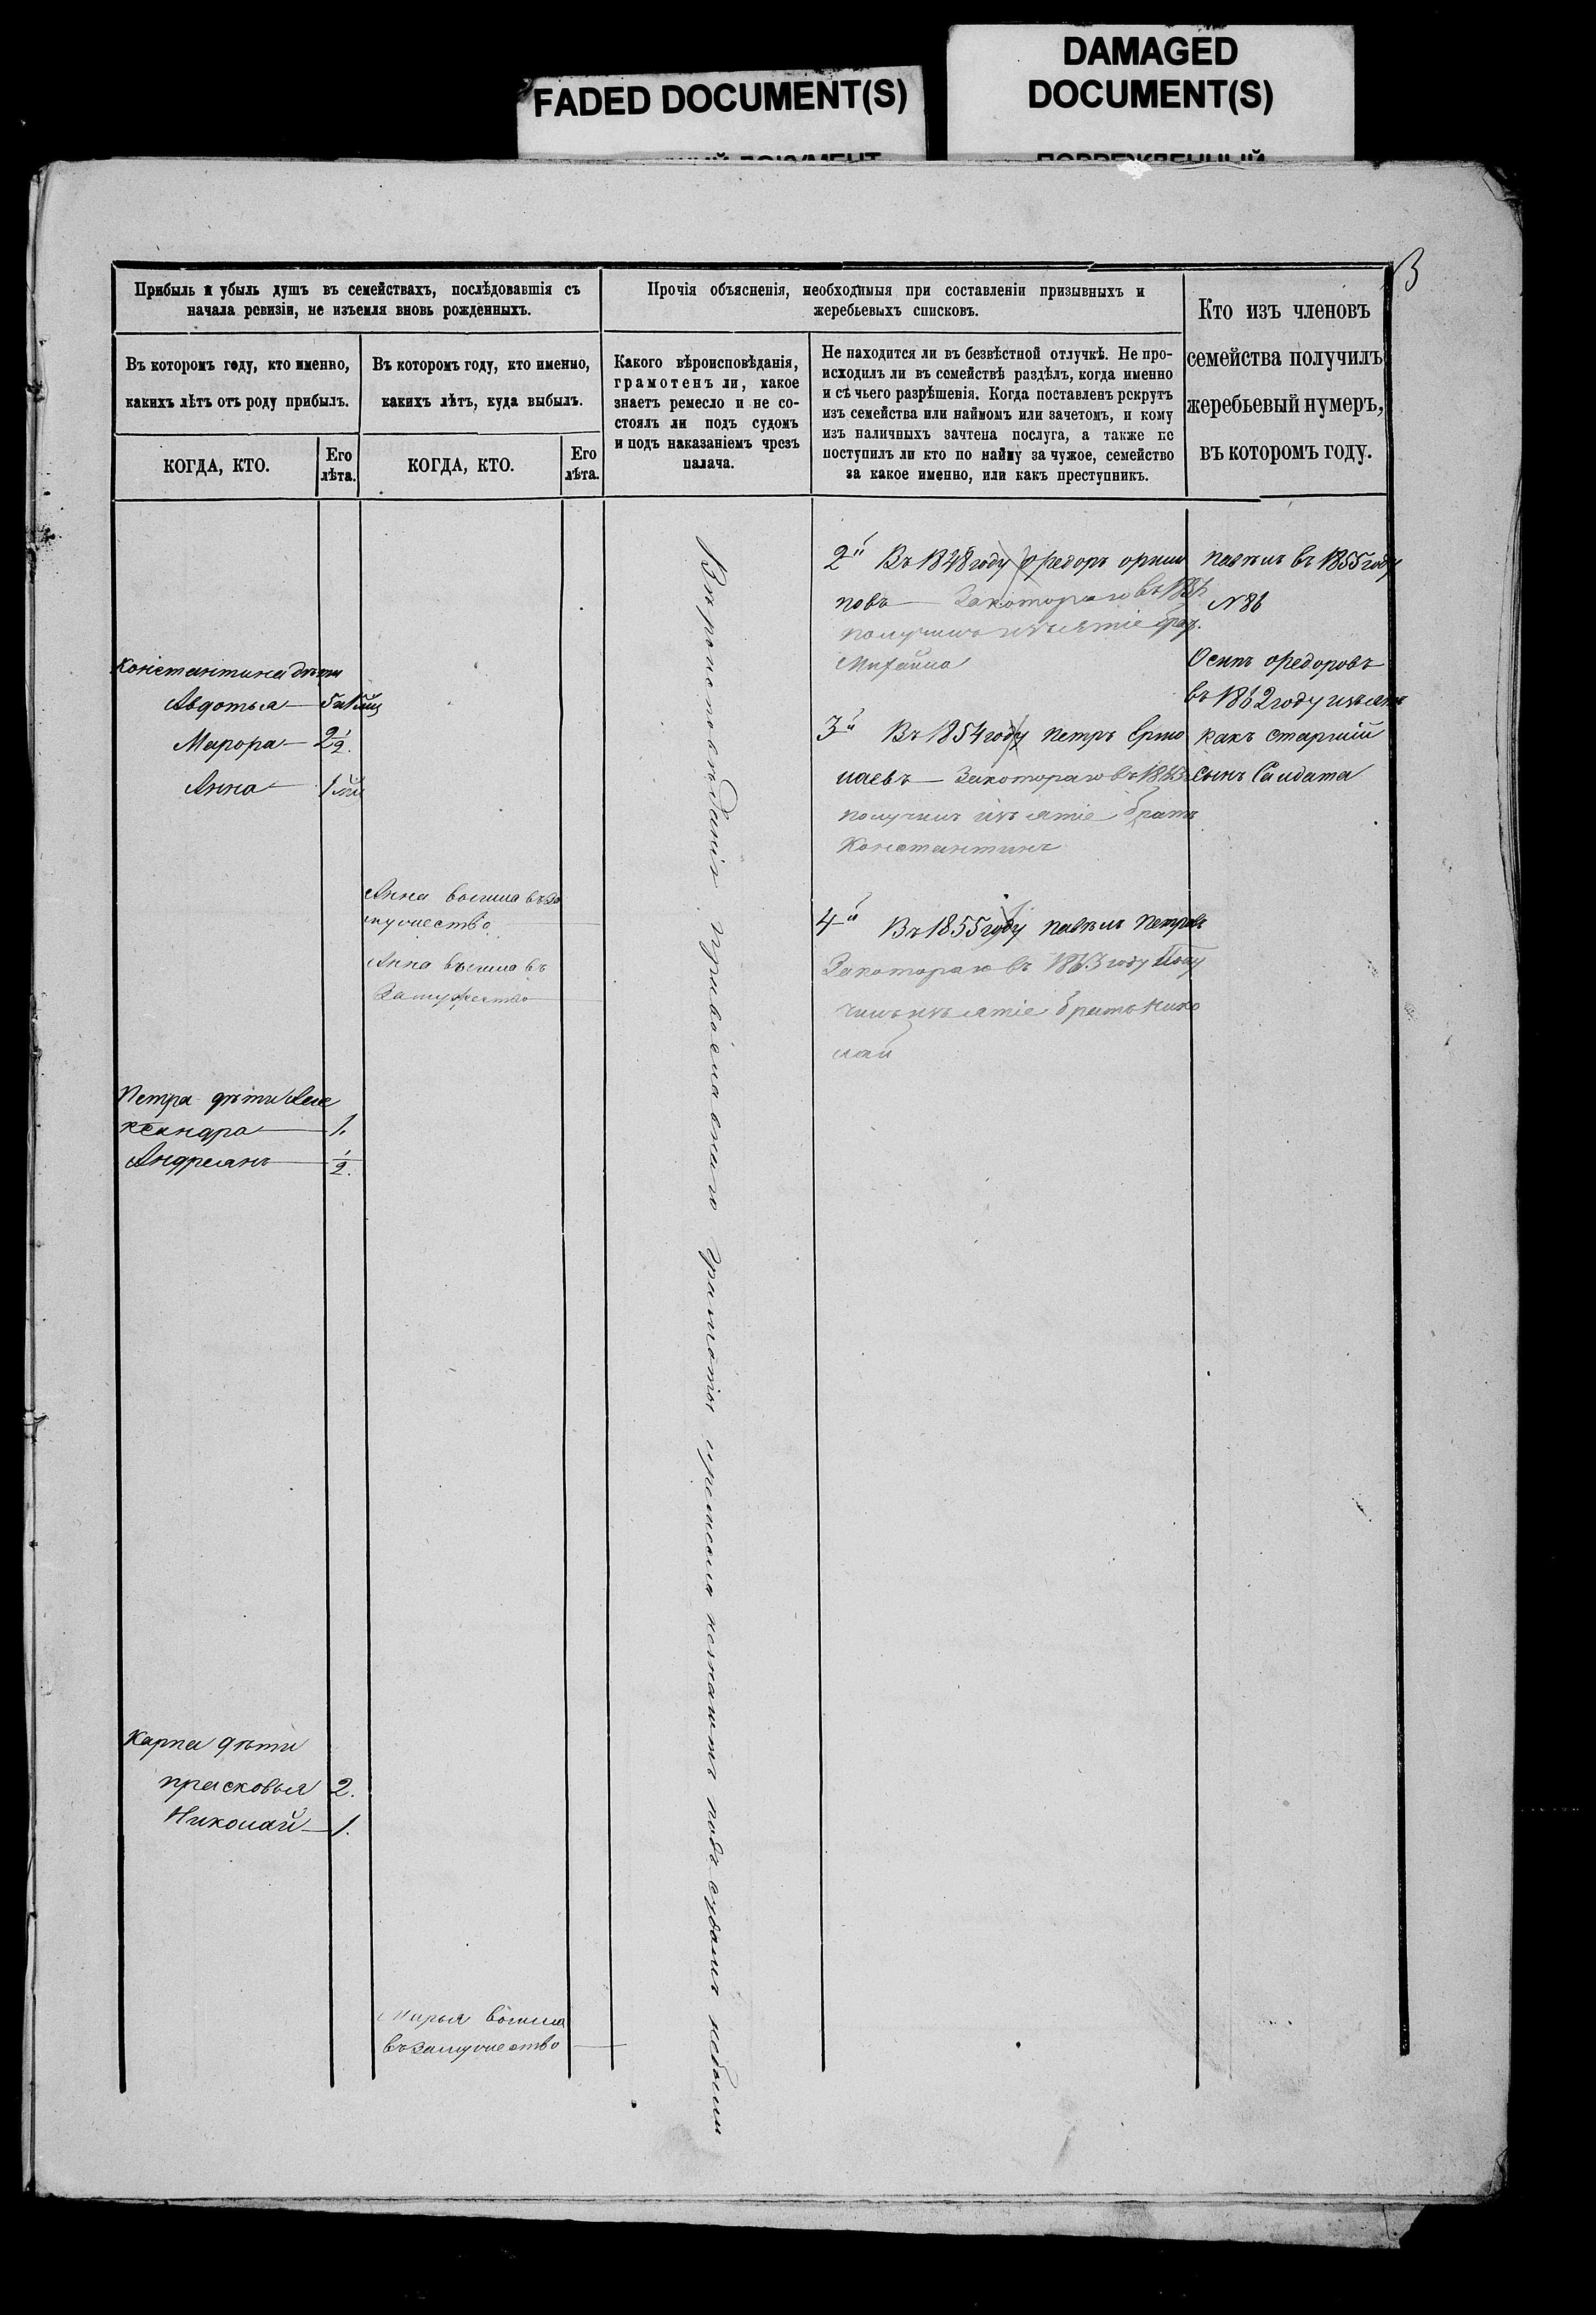 FADED DOCUMENT(S)
DAMAGED
DOCUMENT(S)
3
Прибыль и убыль душъ въ семействахъ, послѣдовавшія съ
начала ревизіи, не изъемля вновь рожденныхъ.
Въ которомъ году, кто именно,
какихъ лѣтъ отъ роду прибылъ.
КОГДА, КТО.
Его
лѣта.
Въ которомъ году, кто именно,
какихъ лѣтъ, куда выбылъ.
КОГДА, КТО.
Его
лѣта.
Прочія объясненія, необходимыя при составленіи призывныхъ и
жеребьевыхъ списковъ.
Какого вѣроисповѣданія,
грамотенъ ли, какое
знаетъ ремесло и не со-
стоялъ ли подъ судомъ
и подъ наказаніемъ чрезъ
палача.
Не находится ли въ безвѣстной отлучкѣ. Не про-
исходилъ ли въ семействѣ раздѣлъ, когда именно
и съ чьего разрѣшенія. Когда поставленъ рекрутъ
изъ семейства или наймомъ или зачетомъ, и кому
изъ наличныхъ зачтена послуга, а также не
поступилъ ли кто по найму за чужое, семейство
за какое именно, или какъ преступникъ.
Кто изъ членовъ
семейства получилъ
жеребьевый нумеръ,
въ которомъ году.
Константина дѣти
Авдотья
Марѳра 2 1/2.
Анна
Петра дѣти Але
ксандра 1.
Андреянъ 1/2.
Карпа дѣти
прасковья 2.
Николай 1.
Анна вышла въ За
мужество
Анна вышла въ
Замужество
Марья вышла
въ замужество
Вѣроисповѣданія православнаго грамоты ремесла незнаютъ подъ судомъ небыли
2й Въ 1848 году ѳредоръ
повъ За котораго въ
получилъ изъятіе
Михаила
3й Въ 1854 году петръ Ермо
лаевъ За котораго въ 1863
получилъ изъятіе братъ
Константинъ
4й Въ 1855 году павѣлъ Петровъ
За котораго въ 1863 году Полу
чилъ изъятіе братъ Нико
лай
павѣлъ въ 1855 году
N 86
Осипъ ѳредоровъ
въ 1862 году изъятъ
какъ старшій
сынъ Салдата